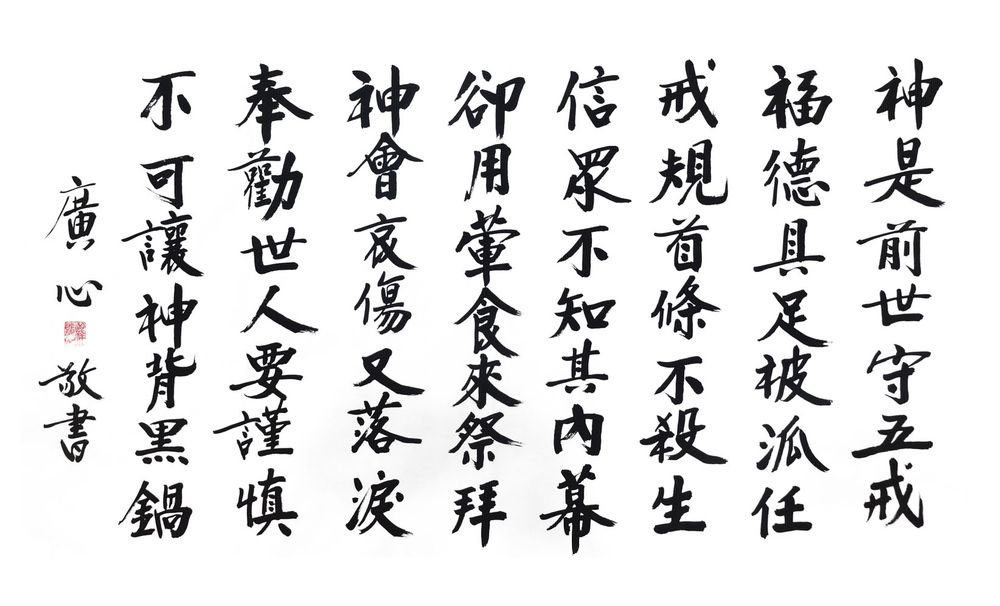 神是前世守五戒
福德具足被派任
戒規首條不殺生
信眾不知其內幕
卻用葷食來祭拜
神會哀傷又落淚
奉勸世人要謹慎
不可讓神背黑鍋
廣心敬書